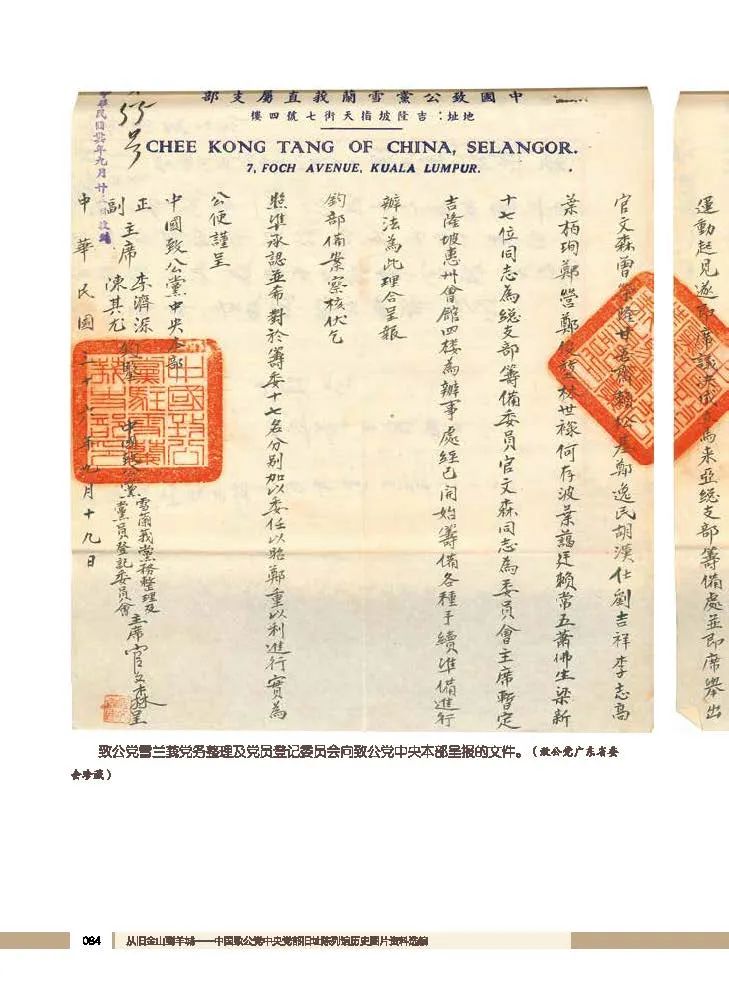 中國致公黨雪蘭莪直屬支部
地址：吉隆坡指天街七號四樓
CHEE KONG TANG OF CHINA, SELANGOR.
7, FOCH AVENUE, KUALA LUMPUR.
55號
運動起見遂即席議決成立馬來亞總支部籌備處並即席舉出
官文森曾榮隆甘善齋 鄭逸民胡漢仕劉吉祥李志高
葉栢珣鄭螢鄭 林世祿何存波葉藹廷賴常五蕭佛生梁新
十七位同志為總支部籌備委員官文森同志為委員會主席暫定
吉隆坡惠州會館四樓為辦事處經已開始籌備各種手續準備進行
辦法為此理合呈報
鈞部備案察核伏乞
照準承認並希對於籌委十七名分別加以委任以昭鄭重以利進行實為
公便謹呈
中國致公黨中央本部
正
副主席李濟深
陳其尤
中國致公黨雪蘭莪黨務整理及
黨員登記委員會主席官文森呈
中華民國三十六年九月十九日
致公党雪兰莪党务整理及党员登记委员会向致公党中央本部呈报的文件。（致公党广东省委
会珍藏）
084
从旧金山到羊城——中国致公党中央党部旧址陈列馆历史图片资料选编